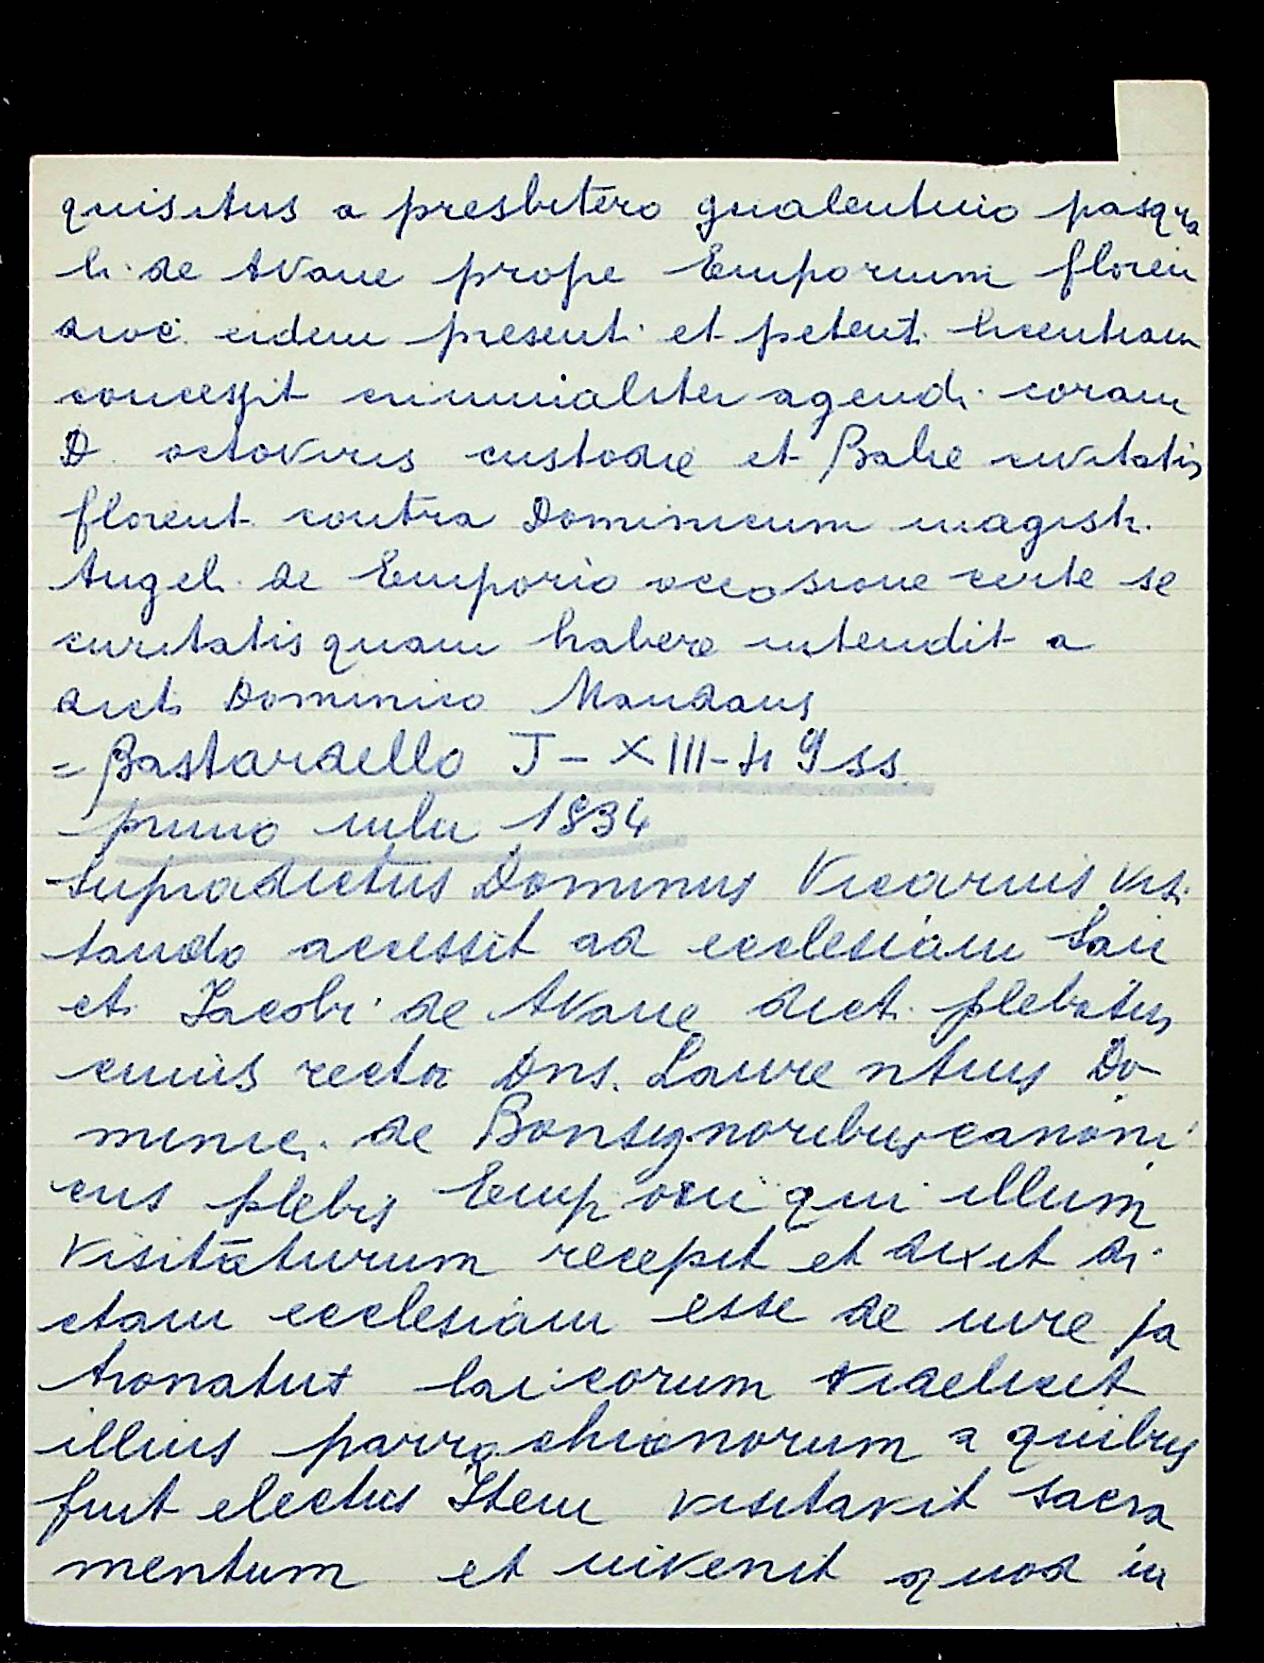 quisitus a presbitero gualentino pasqua
li de Avane prope Emporium floren
dioc. eidem present. et petent. licentiam
concessit criminaliter agendi coram
D. octoviris custodie et Balie civitatis
florent. contra Dominicum magistr.
Angeli de Emporio occasione certe se
curitatis quam habere intendit a
dicto Dominico Mandans
= Bastardello J-XIII-4 9 ss.
primo iulii 1834
Supradictus Dominus Vicarius visi
tando accessit ad ecclesiam San
cti Jacobi de Avane dicti plebatus
cuius rector Dns. Laurentius Do
minic. de Bonsignoribus canoni
cus plebis Emporii qui illum
visitaturum recepit et dixit di
ctam ecclesiam esse de iure pa
tronatus laicorum videlicet
illius parrochianorum a quibus
fuit electus Item visitavit Sacra
mentum et invenit quod in